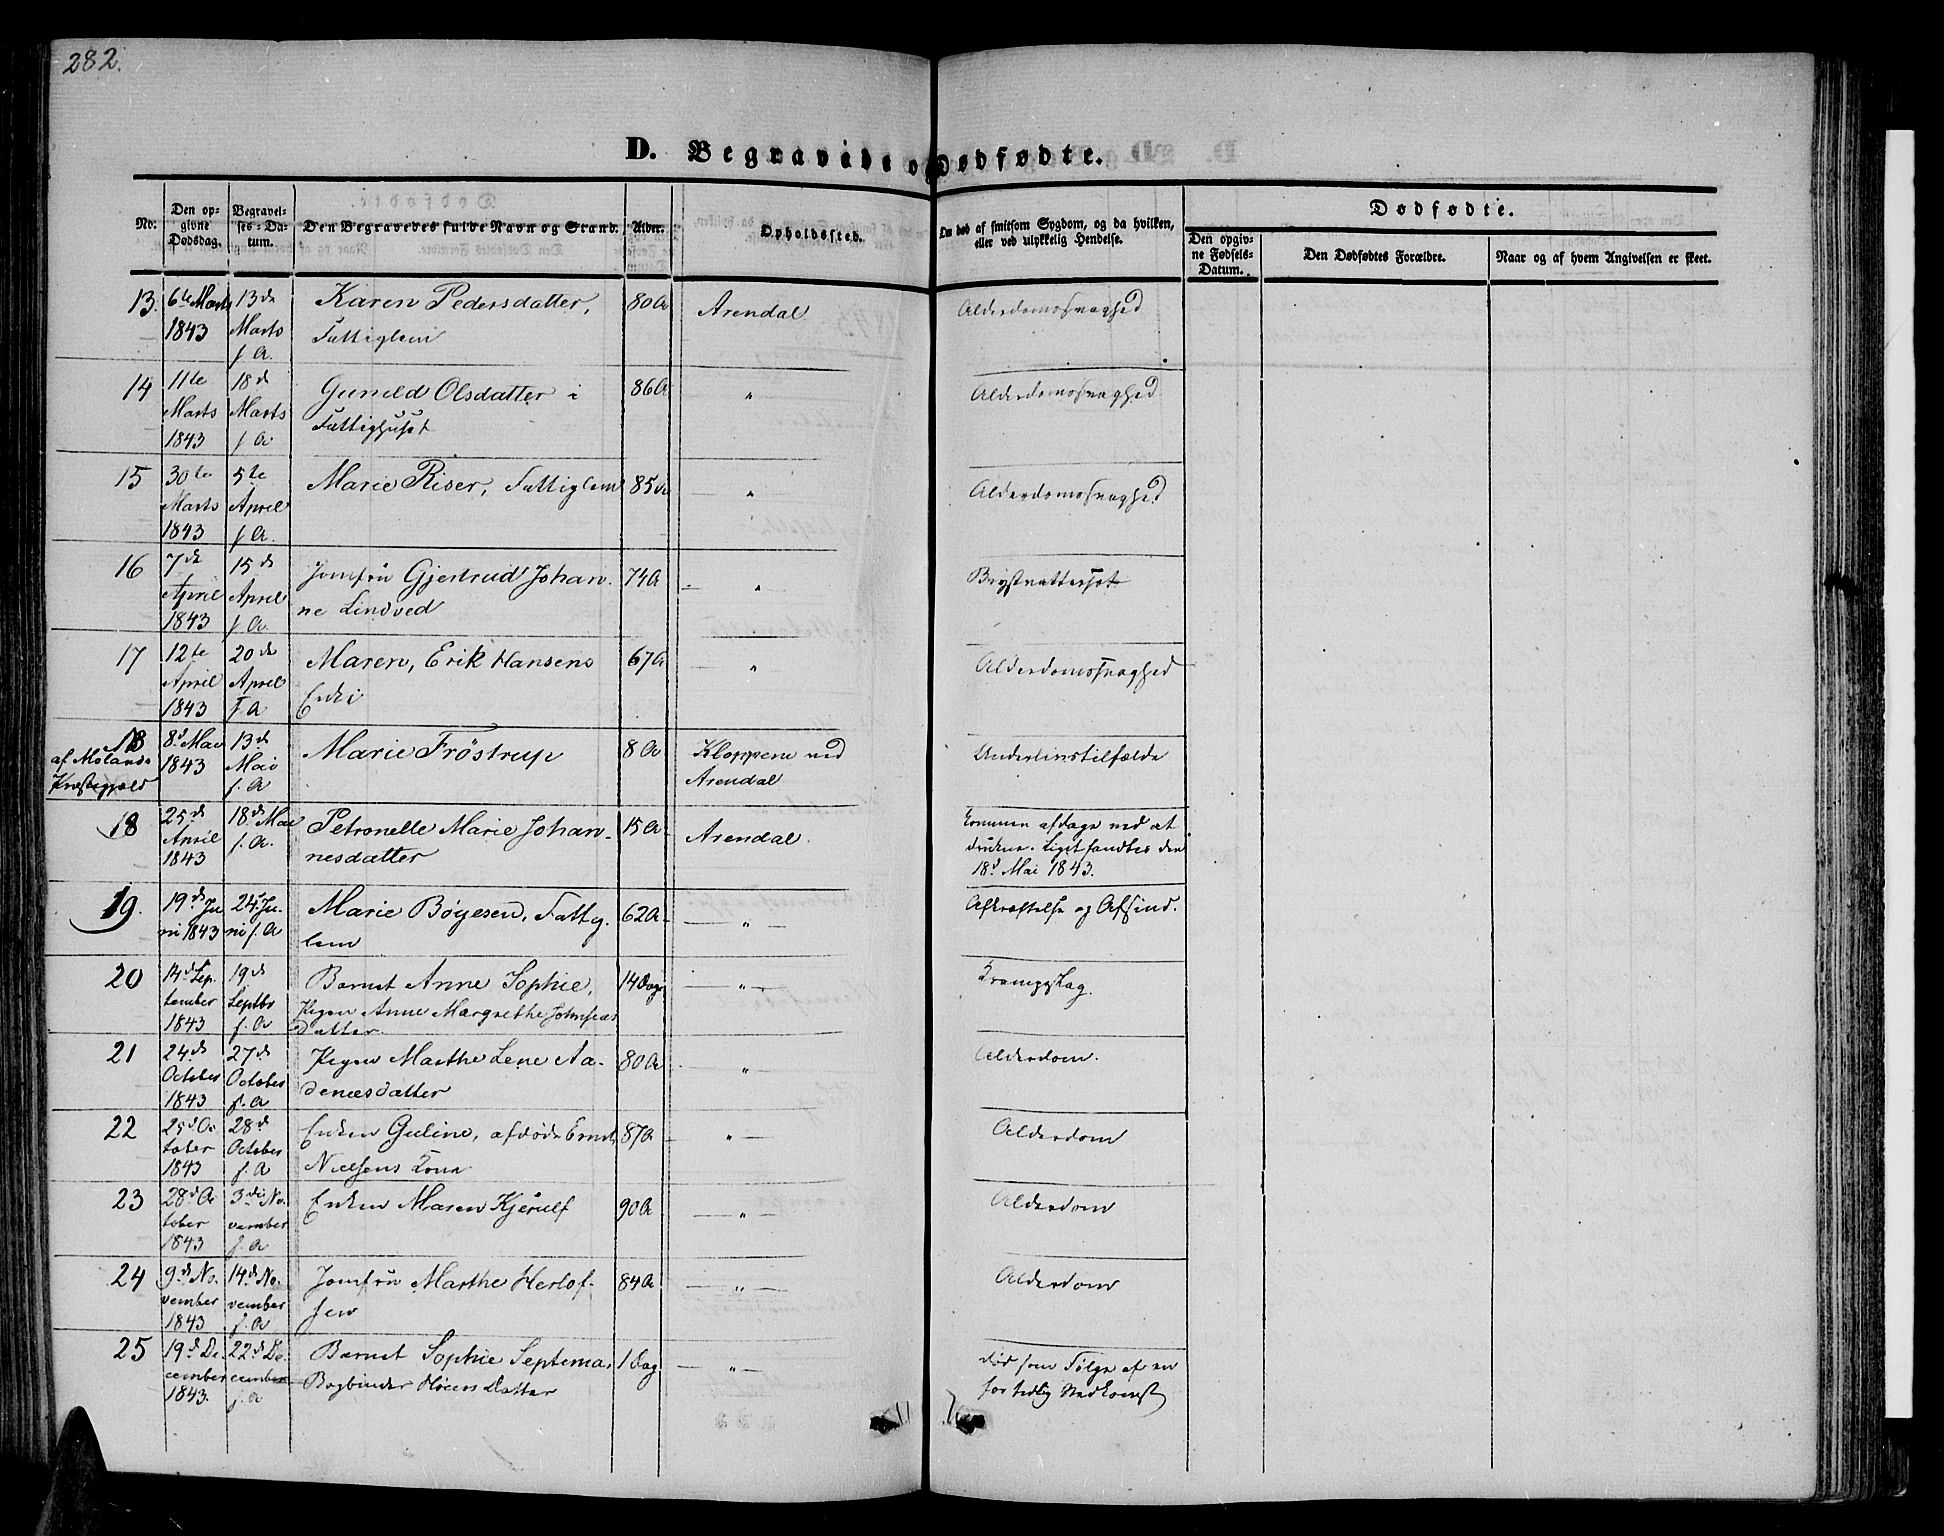 282.
D. Begravede og Dødfødte.
No.
Den opgivne Dødsdag.
Begravelses-Datum.
Den Begravedes fulde Navn og Stand.
Alder.
Opholdssted.
Om død af smitsom Sygdom, og da hvilken, eller ved ulykkelig Hendelse.
Dødfødte.
Den opgivne Fødsels-Datum.
Den Dødfødtes Forældre.
Naar og af hvem Angivelsen er skeet.
13. 6te Marts 1843 13de Marts s. A. Karen Pedersdatter, 80 A Arendal Alderdomssvaghed
Fattiglem
14 11te Marts 1843 18de Marts s. A. Guneld Olsdatter i 86 A " Alderdomssvaghed
Fattighuset
15 30te Marts 1843 5te April s. A. Marie Riser, Fattiglem 85 A " Alderdomssvaghed
16 7de April 1843 15de April s. A. Jomfru Gjertrud Johan- 74 A " Brystvattersot
ne Lindved
17 12te April 1843 20de April s. A. Maren, Erik Hansens 67 A " Alderdomssvaghed
Enke
18 af Molands Præstegjeld 8d Mai 1843 13de Mai s. A. Marie Frøstrup 8 A Kloppene ved Arendal Underlivstilfælde
18 25de April 1843 18de Mai s. A. Petronelle Marie Johan- 15 A Arendal. kommen afdage ved at
nesdatter drukne. Liget fandtes den
18d Mai 1843.
19. 19de Juni 1843 24de Juni s. A. Marie Bøyesen, Fattig- 62 A " Afkræftelse og Afsind.
lem
20 14de September 1843 19de Septbr s. A. Barnet Anne Sophie, 14 Dage " Krampeslag.
Pigen Anne Margrethe Johnsens
Datter.
21 24de October 1843 27de October s. A. Pigen Marthe Lene Aa- 80 A " Alderdom.
denæsdatter
22 25de October 1843 28de October s. A. Enken Guline, afdøde Ernst 87 A " Alderdom
Nielsens Kone
23 28de October 1843 3die November s. A. Enken Maren Kjerulf 90 A " Alderdom
24 9de November 1843 14de November s. A. Jomfru Marthe Herlof- 84 A " Alderdom
sen
25 19de December 1843. 22de December s. A. Barnet Sophie Septema, 1 Dag " død som Følge af en
Bogbinder Datter for tidlig Nedkomst